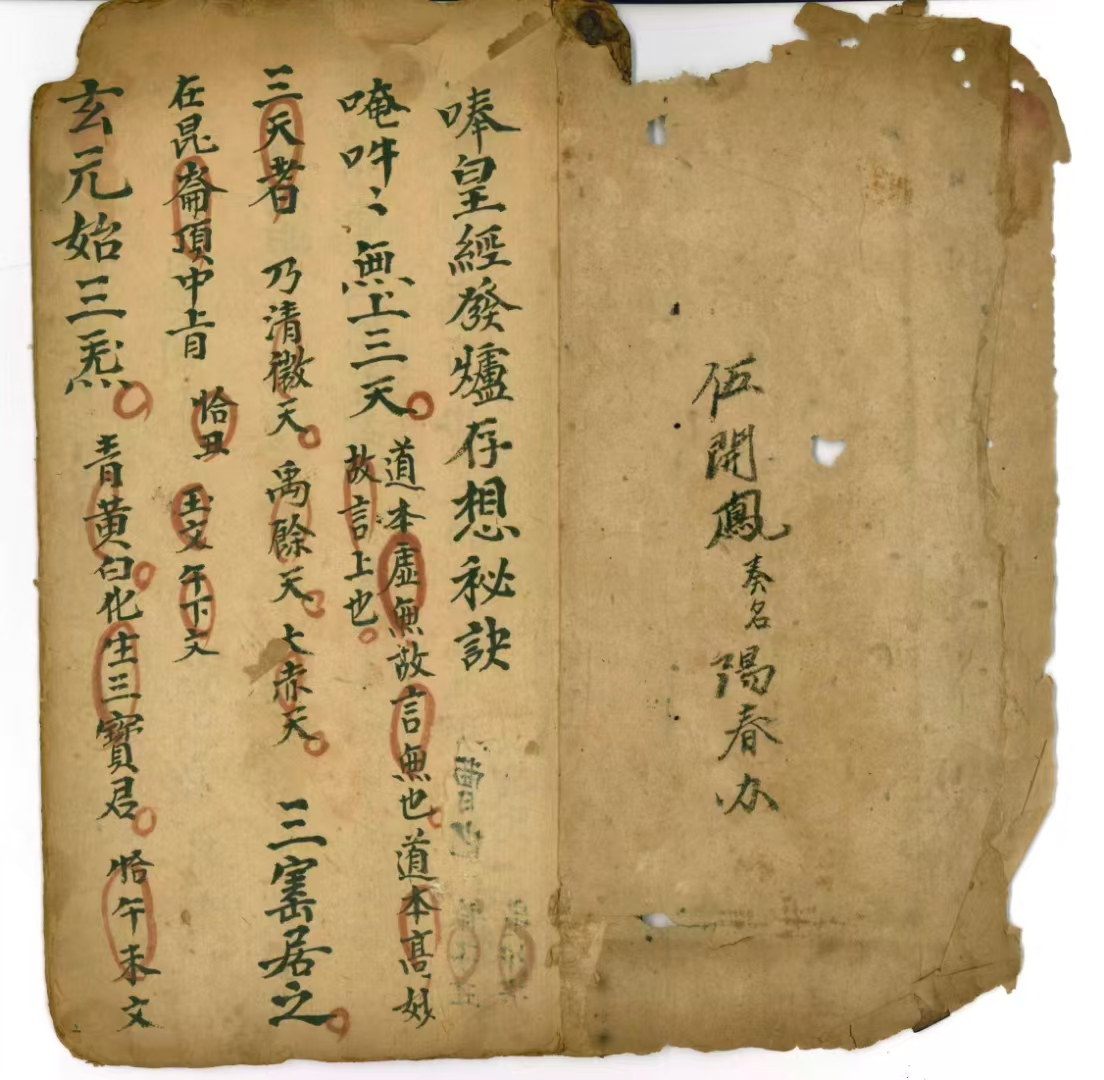 伍開鳳奏名陽春办
唪皇經發爐存想秘訣
唵吽〻無上三天 道本虛無故言無也道本高妙
故言上也
三天者 乃清微天 禹餘天 大赤天 三寳居之
在崑崙頂中上肙 恰丑 玉文 午下文
玄元始三炁 青黄白化生三寶君 恰午未文